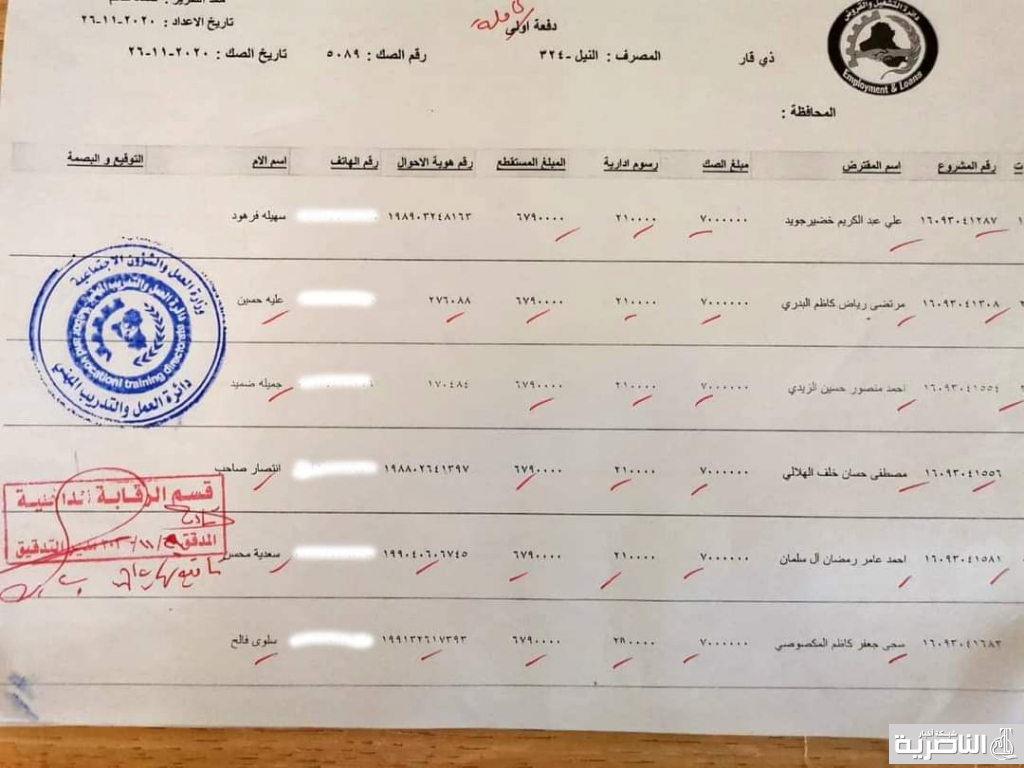 تاريخ الاعداد : ٢٦-١١-٢٠٢٠
دفعة اولى
كاملة
دائرة التشغيل والقروض
Employment & Loans
ذي قار
المصرف : النيل -٣٢٤
رقم الصك : ٥٠٨٩
تاريخ الصك : ٢٦-١١-٢٠٢٠
المحافظة :
ت رقم المشروع اسم المقترض مبلغ الصك رسوم ادارية المبلغ المستقطع رقم هوية الاحوال رقم الهاتف اسم الام التوقيع و البصمة
١ ١٦٠٩٣٠٤١٢٨٧ علي عبد الكريم خضيرجويد ٧٠٠٠٠٠٠ ٢١٠٠٠٠ ٦٧٩٠٠٠٠ ١٩٨٩٠٣٢٤٨١٦٣ سهيله فرهود
١٦٠٩٣٠٤١٣٠٨ مرتضى رياض كاظم البدري ٧٠٠٠٠٠٠ ٢١٠٠٠٠ ٦٧٩٠٠٠٠ ٢٧٦٠٨٨ عليه حسين
١٦٠٩٣٠٤١٥٥٤ احمد منصور حسين الزيدي ٧٠٠٠٠٠٠ ٢١٠٠٠٠ ٦٧٩٠٠٠٠ ١٧٠٤٨٤ جميله ضميد
١٦٠٩٣٠٤١٥٥٦ مصطفى حسان خلف الهلالي ٧٠٠٠٠٠٠ ٢١٠٠٠٠ ٦٧٩٠٠٠٠ ١٩٨٨٠٢٦٤١٣٩٧ انتصار صاحب
١٦٠٩٣٠٤١٥٨١ احمد عامر رمضان آل سلمان ٧٠٠٠٠٠٠ ٢١٠٠٠٠ ٦٧٩٠٠٠٠ ١٩٩٠٤٠٦٠٦٧٤٥ سعدية محسن
١٦٠٩٣٠٤١٦٨٣ سجى جعفر كاظم المكصوصي ٧٠٠٠٠٠٠ ٢١٠٠٠٠ ٦٧٩٠٠٠٠ ١٩٩١٣٢٦١٧٣٩٣ سلوى فالح
وزارة العمل والشؤون الاجتماعية
دائرة العمل والتدريب المهني
and vocational training directorate
قسم الرقابة الداخلية
المدقق
التدقيق
شبكة أخبار
الناصرية